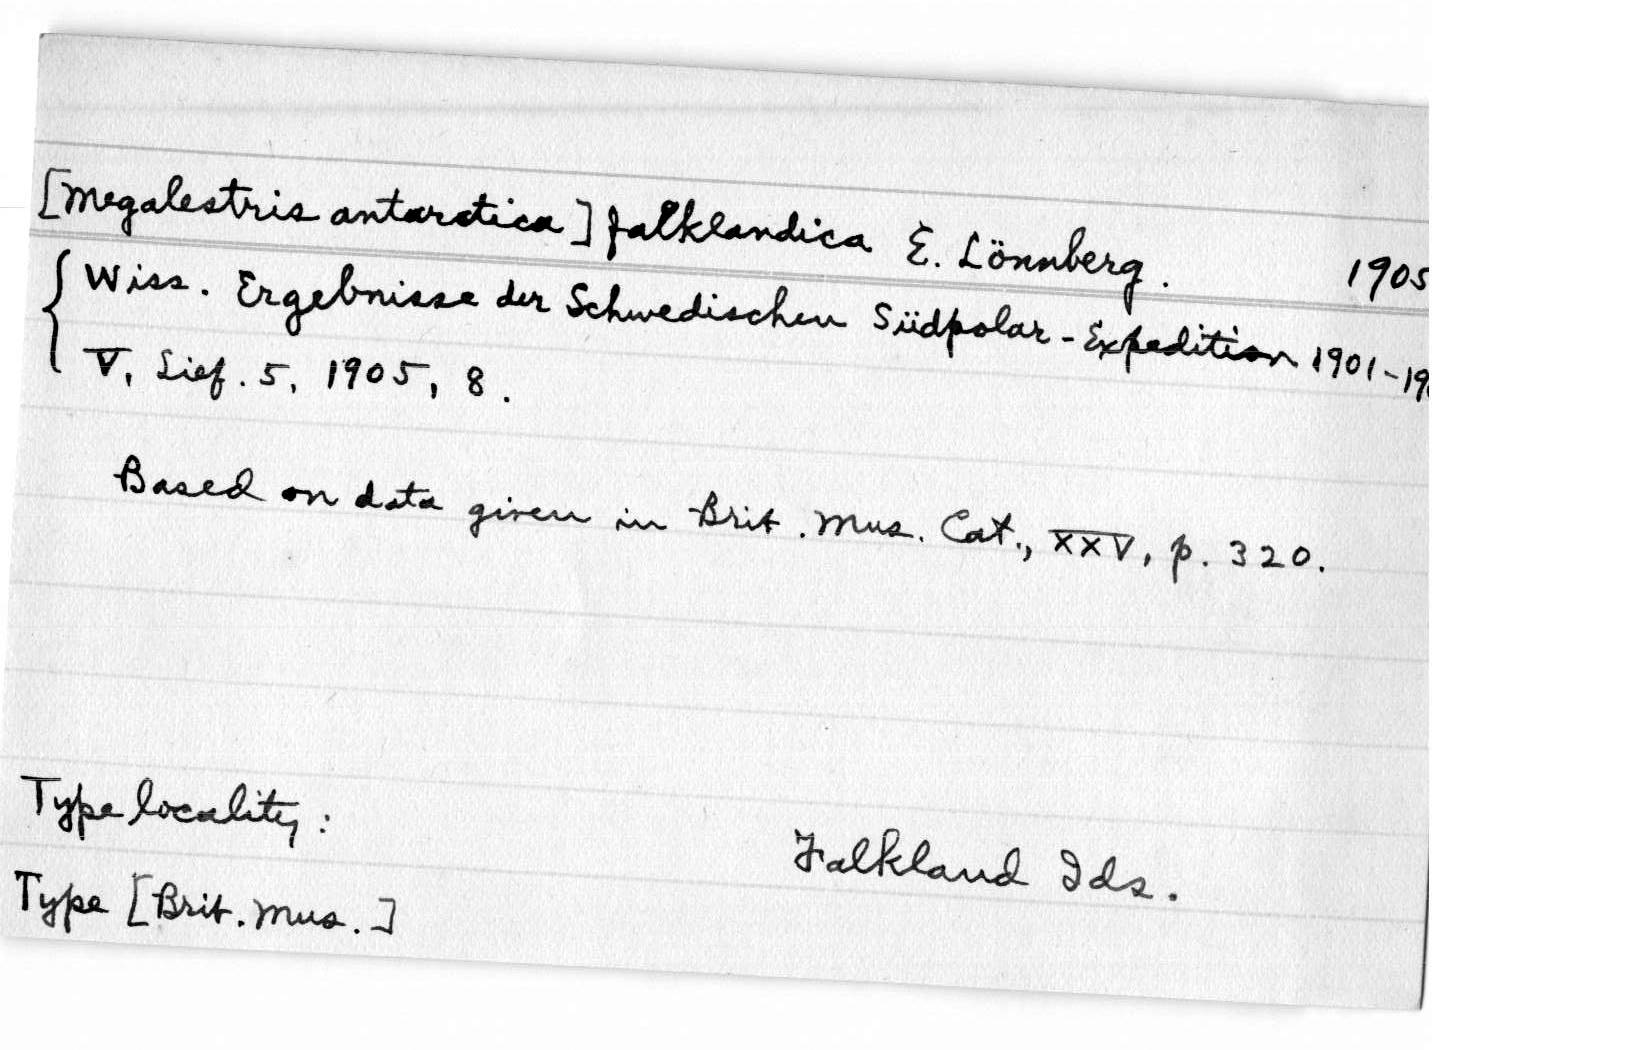 [Megalestris antarctica] falklandica E. Lönnberg. 1905
Wiss. Ergebnisse der Schwedischen Südpolar-Expedition 1901-19
V, Lief. 5, 1905, 8.
Based on data given in Brit. Mus. Cat., XXV, p. 320.
Type locality:
Falkland Ids.
Type [Brit. Mus.]